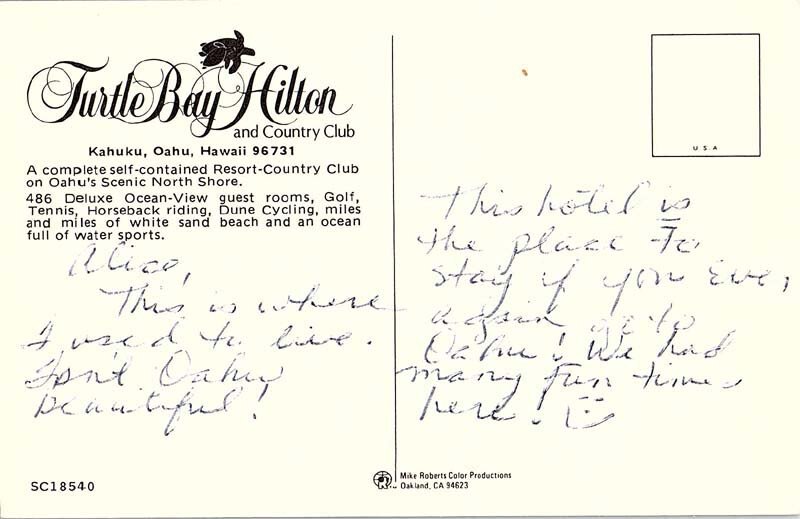 Turtle Bay Hilton
and Country Club
Kahuku, Oahu, Hawaii 96731
A complete self-contained Resort-Country Club
on Oahu's Scenic North Shore.
486 Deluxe Ocean-View guest rooms, Golf,
Tennis, Horseback riding, Dune Cycling, miles
and miles of white sand beach and an ocean
full of water sports.
Alice,
This is where
I used to live.
Isn't Oahu
beautiful!
U.S.A
This hotel is
the place to
stay if you ever
again go to
Oahu! We had
many fun times
here!
SC18540
Mike Roberts Color Productions
Oakland, CA 94623